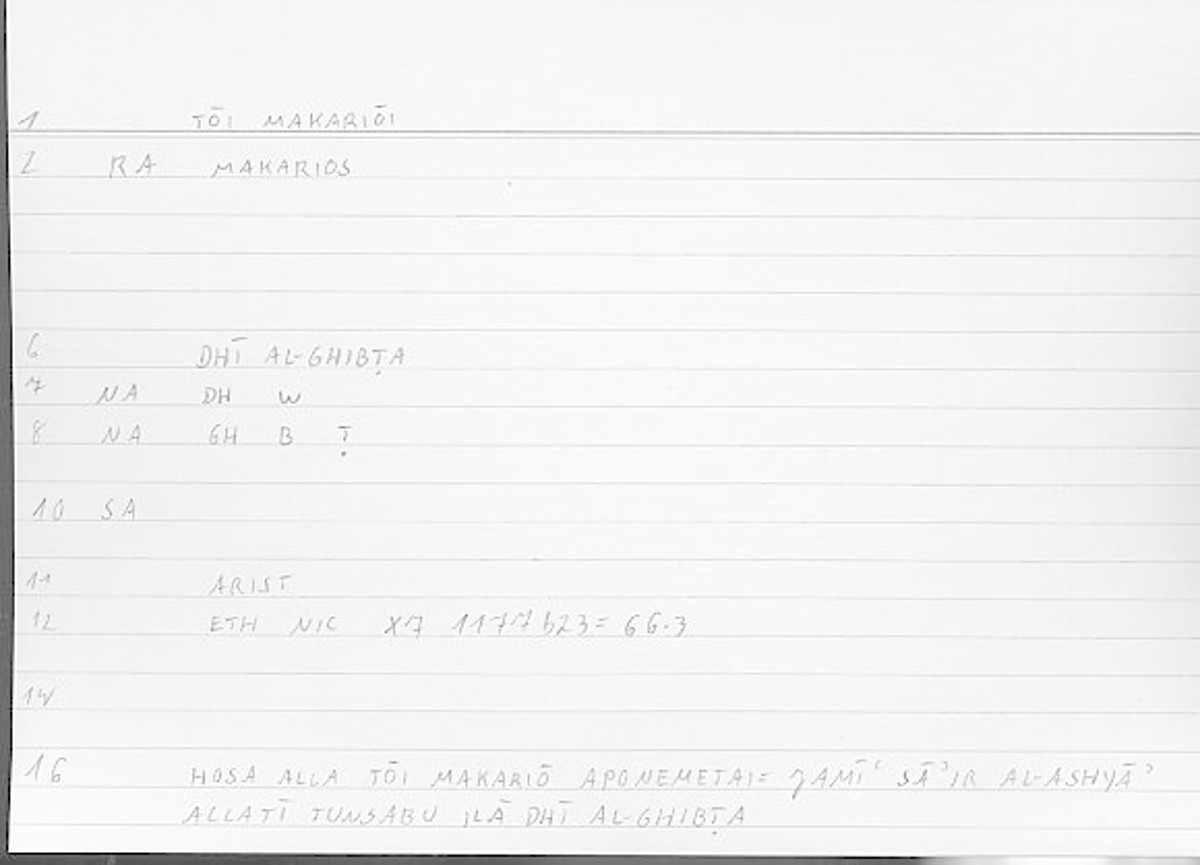 1 TŌI MAKARIŌI
2 RA MAKARIOS
6 DHĪ AL-GHIBṬA
7 NA DH W
8 NA GH B Ṭ
10 SA
11 ARIST
12 ETH NIC X7 1177b23=66.3
14
16 HOSA ALLA TŌI MAKARIŌ APONEMETAI= JAMĪʿ SĀʾIR AL-ASHYĀʾ
ALLATĪ TUNSABU ILĀ DHĪ AL-GHIBṬA